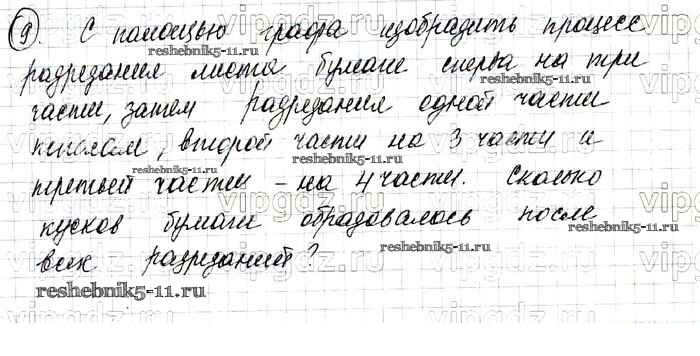 9. С помощью графа изобразить процесс
reshebnik5-11.ru
разрезания листа бумаги сперва на три
reshebnik5-11.ru
части, затем разрезания одной части
пополам, второй части на 3 части и
reshebnik5-11.ru
третьей части - на 4 части. Сколько
кусков бумаги образовалось после
reshebnik5-11.ru
всех разрезаний?
reshebnik5-11.ru
vipgdz.ru